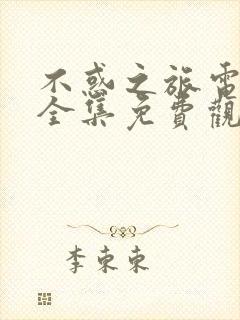 不惑之旅電
全集免費觀
李東東